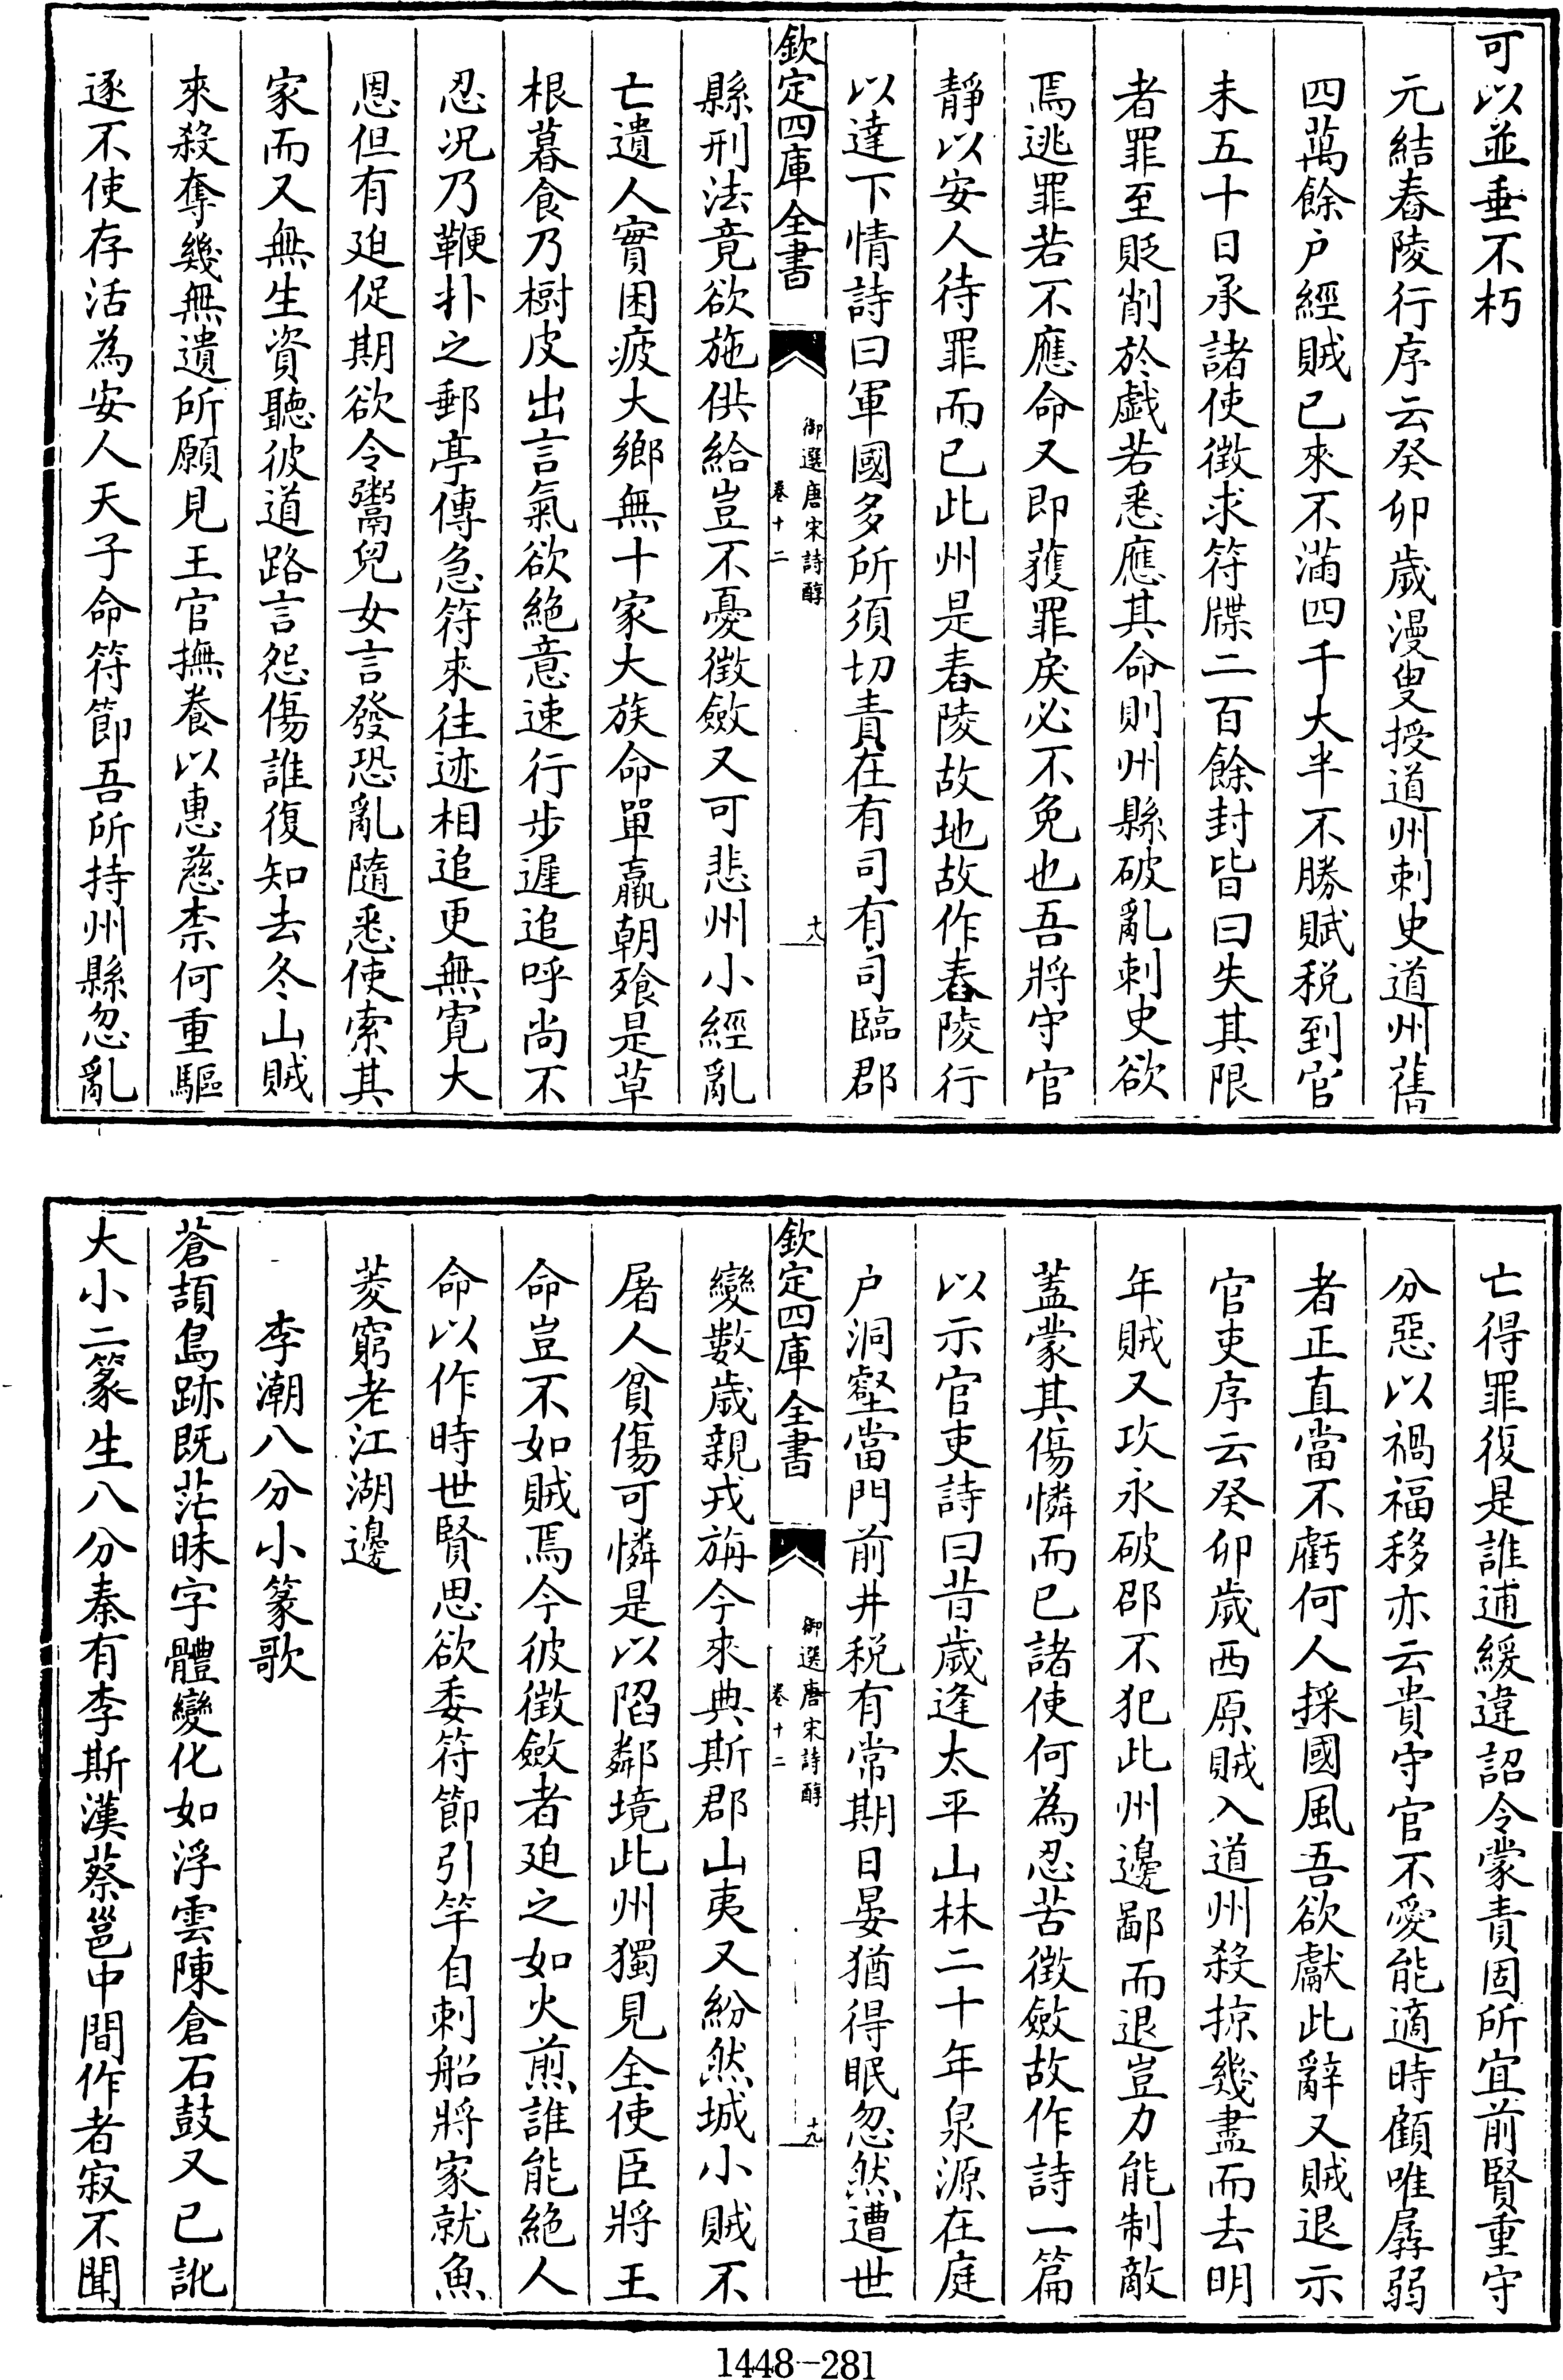 可以並垂不朽
元結舂陵行序云癸卯歲漫叟授道州刺史道州舊
四萬餘户經賊已來不滿四千大半不勝賦税到官
未五十日承諸使徴求符牒二百餘封皆曰失其限
者罪至貶削於戲若悉應其命則州縣破亂刺史欲
焉逃罪若不應命又即獲罪戾必不免也吾將守官
靜以安人待罪而已此州是舂陵故地故作舂陵行
以達下情詩曰軍國多所須切責在有司有司臨郡
欽定四庫全書
御選唐宋詩醇
卷十二
十八
縣刑法竟欲施供給豈不憂徴斂又可悲州小經亂
亡遺人實困疲大鄉無十家大族命單羸朝飱是草
根暮食乃樹皮出言氣欲絶意速行步遲追呼尚不
忍况乃鞭扑之郵亭傳急符來往迹相追更無寛大
恩但有廹促期欲令鬻兒女言發恐亂隨悉使索其
家而又無生資聽彼道路言怨傷誰復知去冬山賊
來殺奪幾無遺所願見王官撫養以惠慈柰何重驅
逐不使存活為安人天子命符節吾所持州縣忽亂
亡得罪復是誰逋緩違詔令蒙責固所宜前賢重守
分惡以禍福移亦云貴守官不愛能適時顧唯孱弱
者正直當不虧何人採國風吾欲獻此辭又賊退示
官吏序云癸卯歲西原賊入道州殺掠幾盡而去明
年賊又攻永破邵不犯此州邊鄙而退豈力能制敵
蓋蒙其傷憐而已諸使何為忍苦徴斂故作詩一篇
以示官吏詩曰昔歲逢太平山林二十年泉源在庭
户洞壑當門前井税有常期日晏猶得眠忽然遭世
欽定四庫全書
御選唐宋詩醇
卷十二
十九
變數歲親戎旃今來典斯郡山夷又紛然城小賊不
屠人貧傷可憐是以陷鄰境此州獨見全使臣將王
命豈不如賊焉今彼徴斂者廹之如火煎誰能絶人
命以作時世賢思欲委符節引竿自刺船將家就魚
菱窮老江湖邊
李潮八分小篆歌
蒼頡鳥跡既茫昧字體變化如浮雲陳倉石鼓又已訛
大小二篆生八分秦有李斯漢蔡邕中間作者寂不聞
1448-281